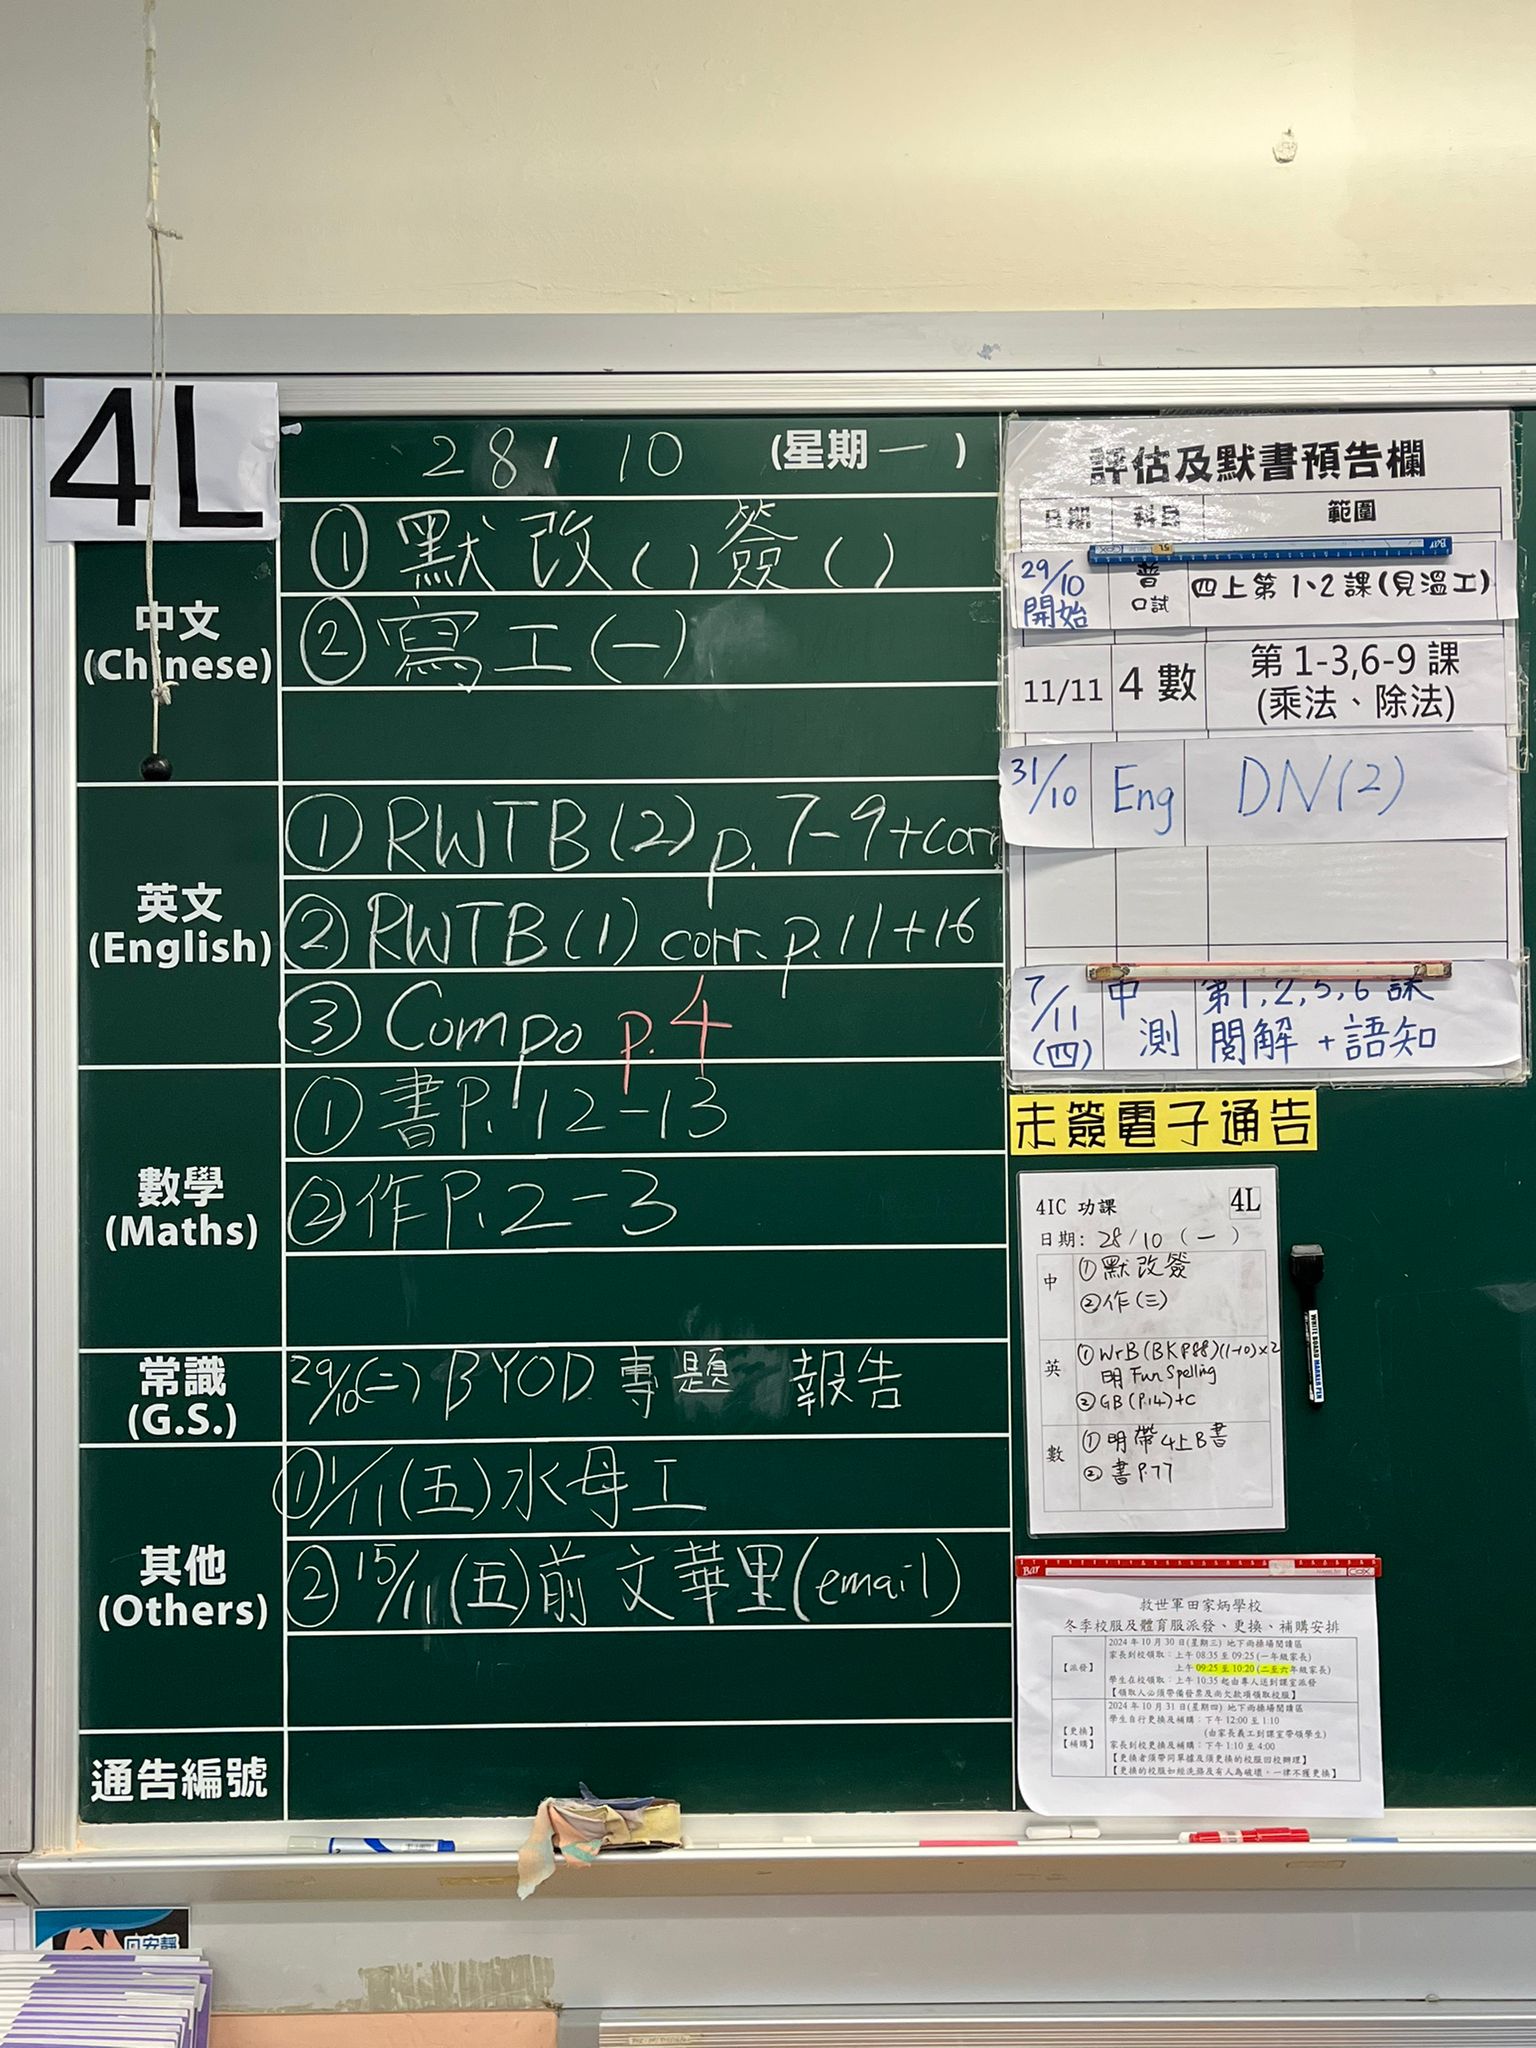 4L
28/10 (星期一)
中文
(Chinese)
① 默改( )簽( )
② 寫工(一)
英文
(English)
① RWTB(2) p.7-9+corr
② RWTB(1) corr. p.11+16
③ Compo p.4
數學
(Maths)
① 書P.12-13
② 作P.2-3
常識
(G.S.)
29/10(二) BYOD 專題 報告
其他
(Others)
① 1/11(五)水母工
② 15/11(五)前文華里(email)
通告編號
評估及默書預告欄
日期 科目 範圍
29/10 開始 普 口試 四上第1、2課(見溫工)
11/11 4數 第1-3,6-9課
(乘法、除法)
31/10 Eng DN(2)
7/11 (四) 中測 第1,2,5,6課
閱解+語知
未簽電子通告
4IC 功課 4L
日期: 28/10 (一)
中 ① 默改簽
② 作(三)
英 ① WrB(BKP88)(1-10)x2
明 Fun Spelling
② GB(P.14)+C
數 ① 明帶4上B書
② 書P.77
WHITE BOARD MARKER PEN
Bar
救世軍田家炳學校
冬季校服及體育服派發、更換、補購安排
【派發】
2024年10月30日(星期三) 地下雨操場閱讀區
家長到校領取：上午 08:35 至 09:25 (一年級家長)
上午 09:25 至 10:20 (二至六年級家長)
學生在校領取：上午 10:35 起由專人送到課室派發
【領取人必須帶備發票及尚欠款項領取校服】
【更換】
【補購】
2024年10月31日(星期四) 地下雨操場閱讀區
學生自行更換及補購：下午 12:00 至 1:10
(由家長義工到課室帶領學生)
家長到校更換及補購：下午 1:10 至 4:00
【更換者須帶同單據及須更換的校服回校辦理】
【更換的校服如經洗滌及有人為破壞，一律不獲更換】